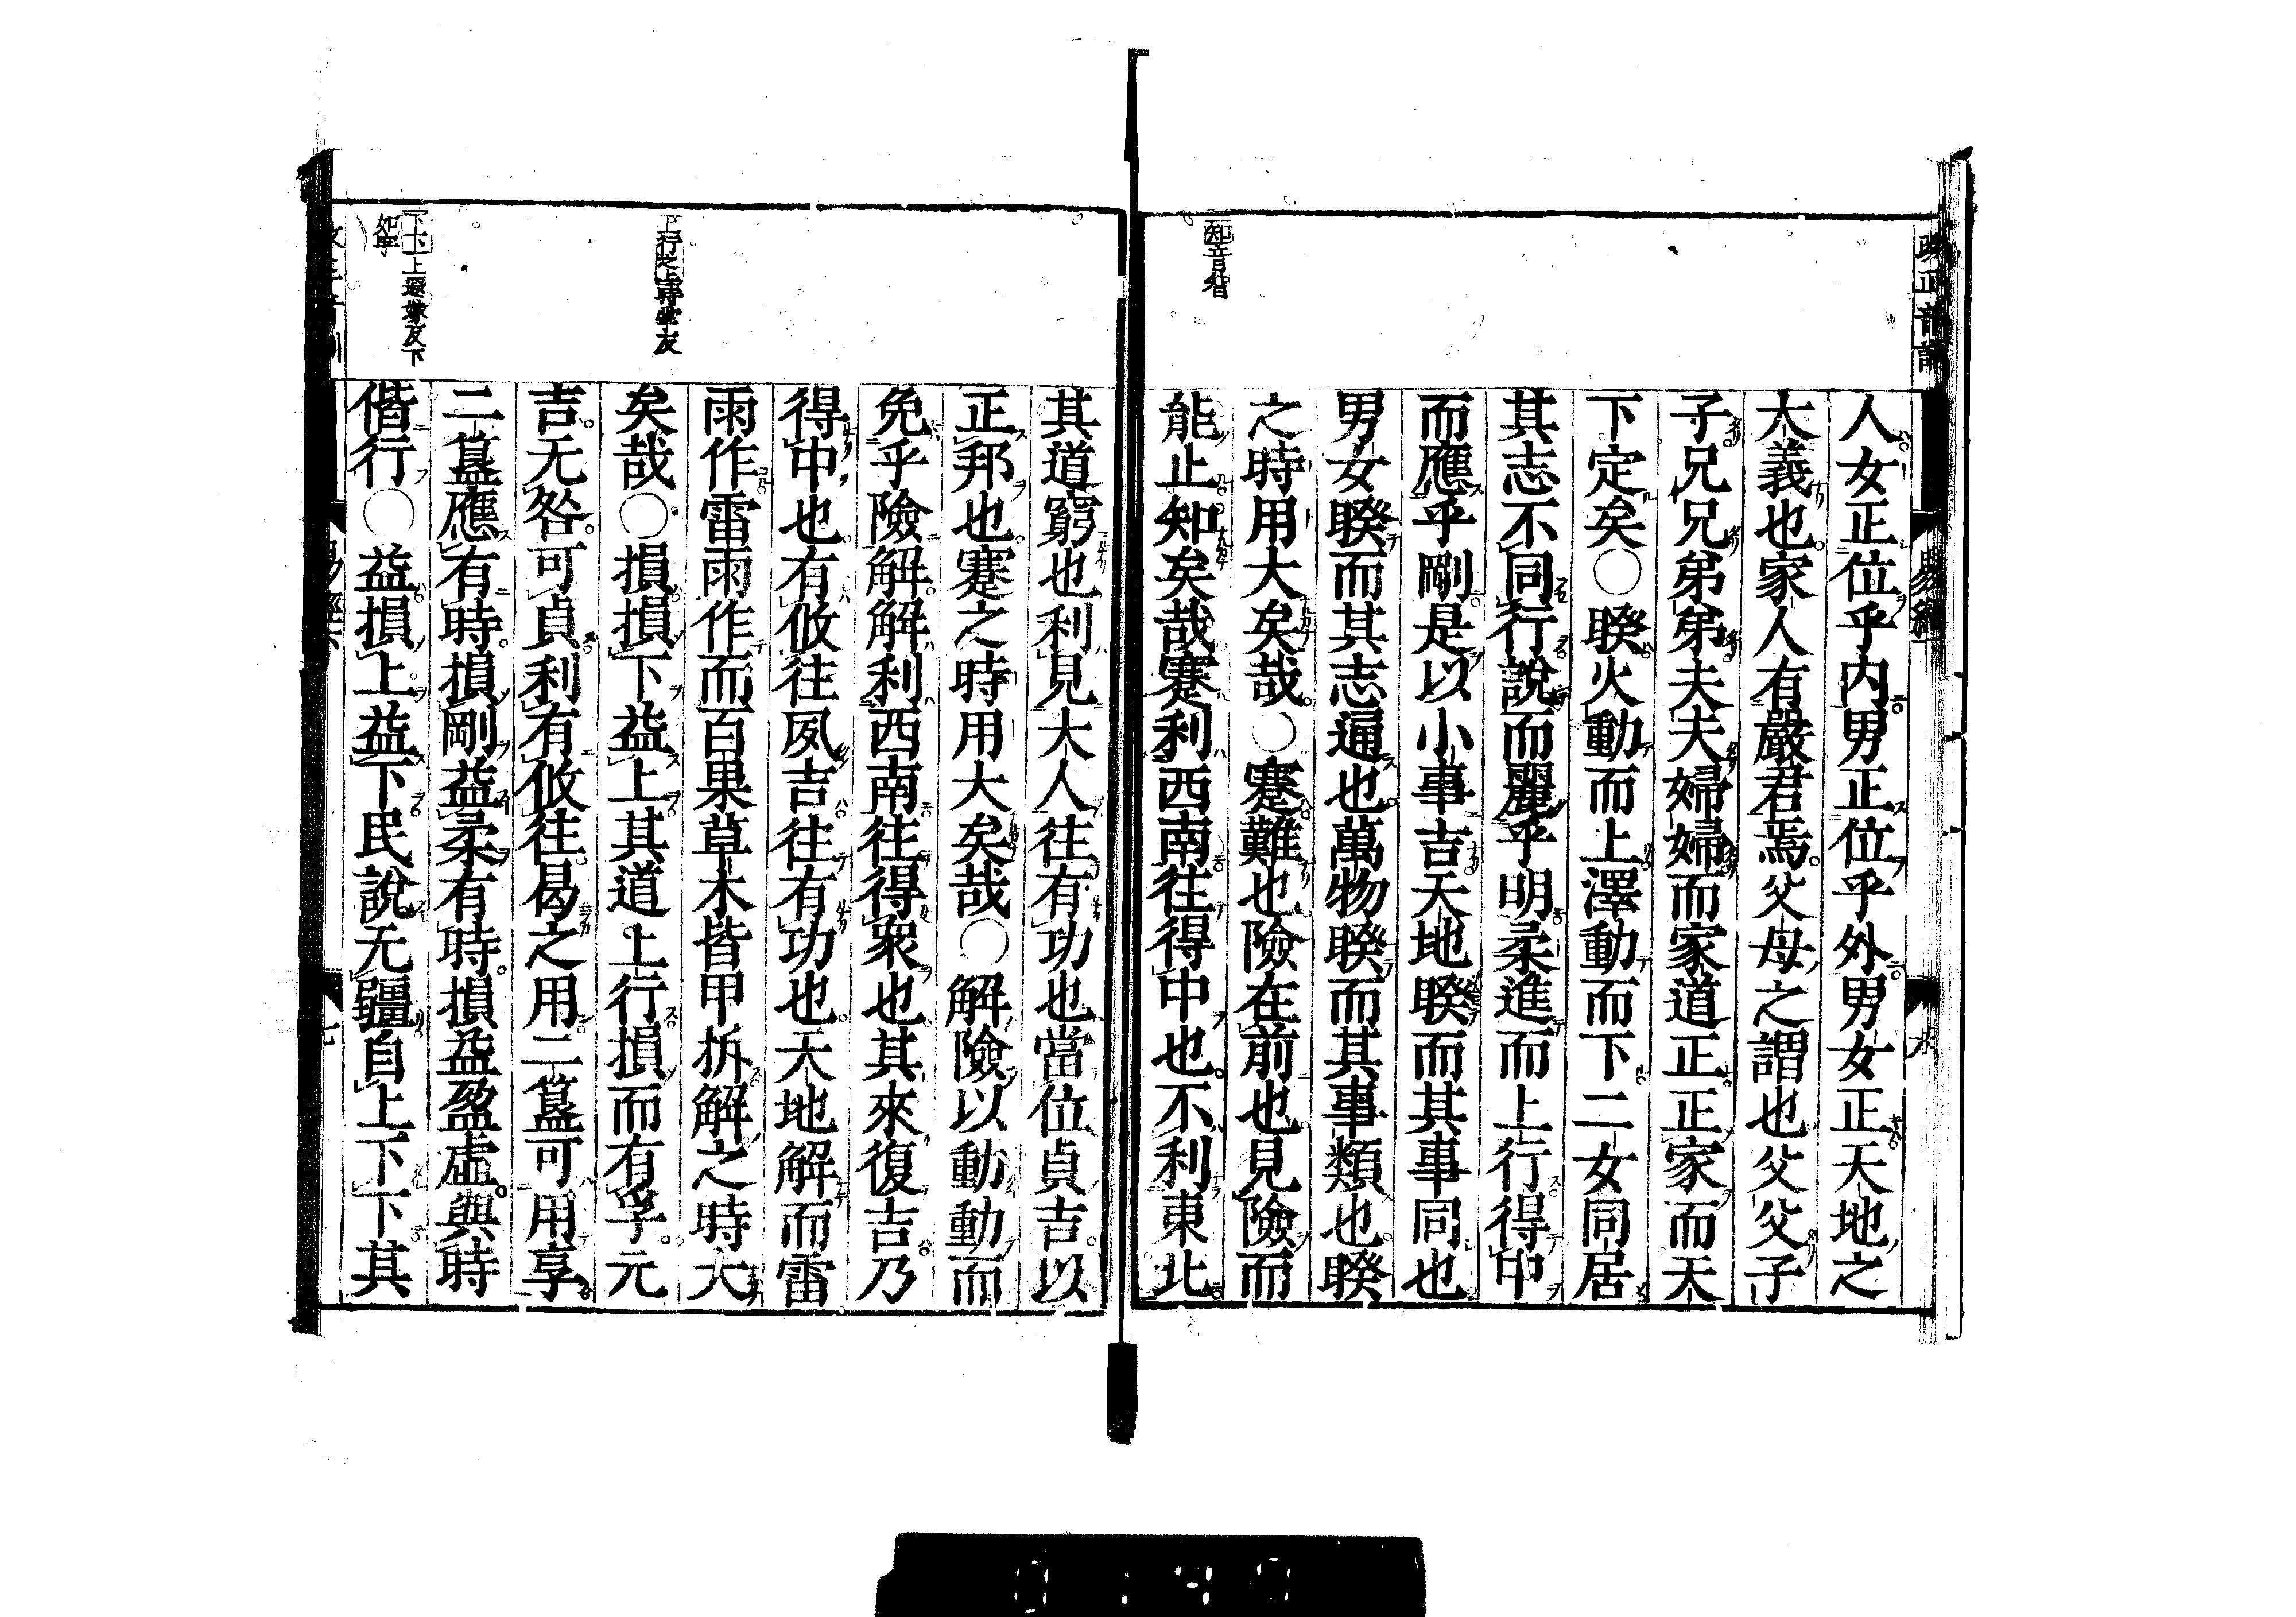 知音智
人女正位乎内男正位乎外男女正天地之
大義也家人有嚴君焉父母之謂也父父子
子兄兄弟弟夫夫婦婦而家道正正家而天
下定矣○睽火動而上澤動而下二女同居
其志不同行說而麗乎明柔進而上行得中
而應乎剛是以小事吉天地睽而其事同也
男女睽而其志通也萬物睽而其事類也睽
之時用大矣哉○蹇難也險在前也見險而
能止知矣哉蹇利西南往得中也不利東北
上行之上時掌反
下下上遐嫁反下
如字
其道窮也利見大人往有功也當位貞吉以
正邦也蹇之時用大矣哉○解險以動動而
免乎險解解利西南往得衆也其來復吉乃
得中也有攸往夙吉往有功也天地解而雷
雨作雷雨作而百果草木皆甲拆解之時大
矣哉○損損下益上其道上行損而有孚元
吉无咎可貞利有攸往曷之用二簋可用享
二簋應有時損剛益柔有時損益盈虛與時
偕行○益損上益下民說无疆自上下下其
易經